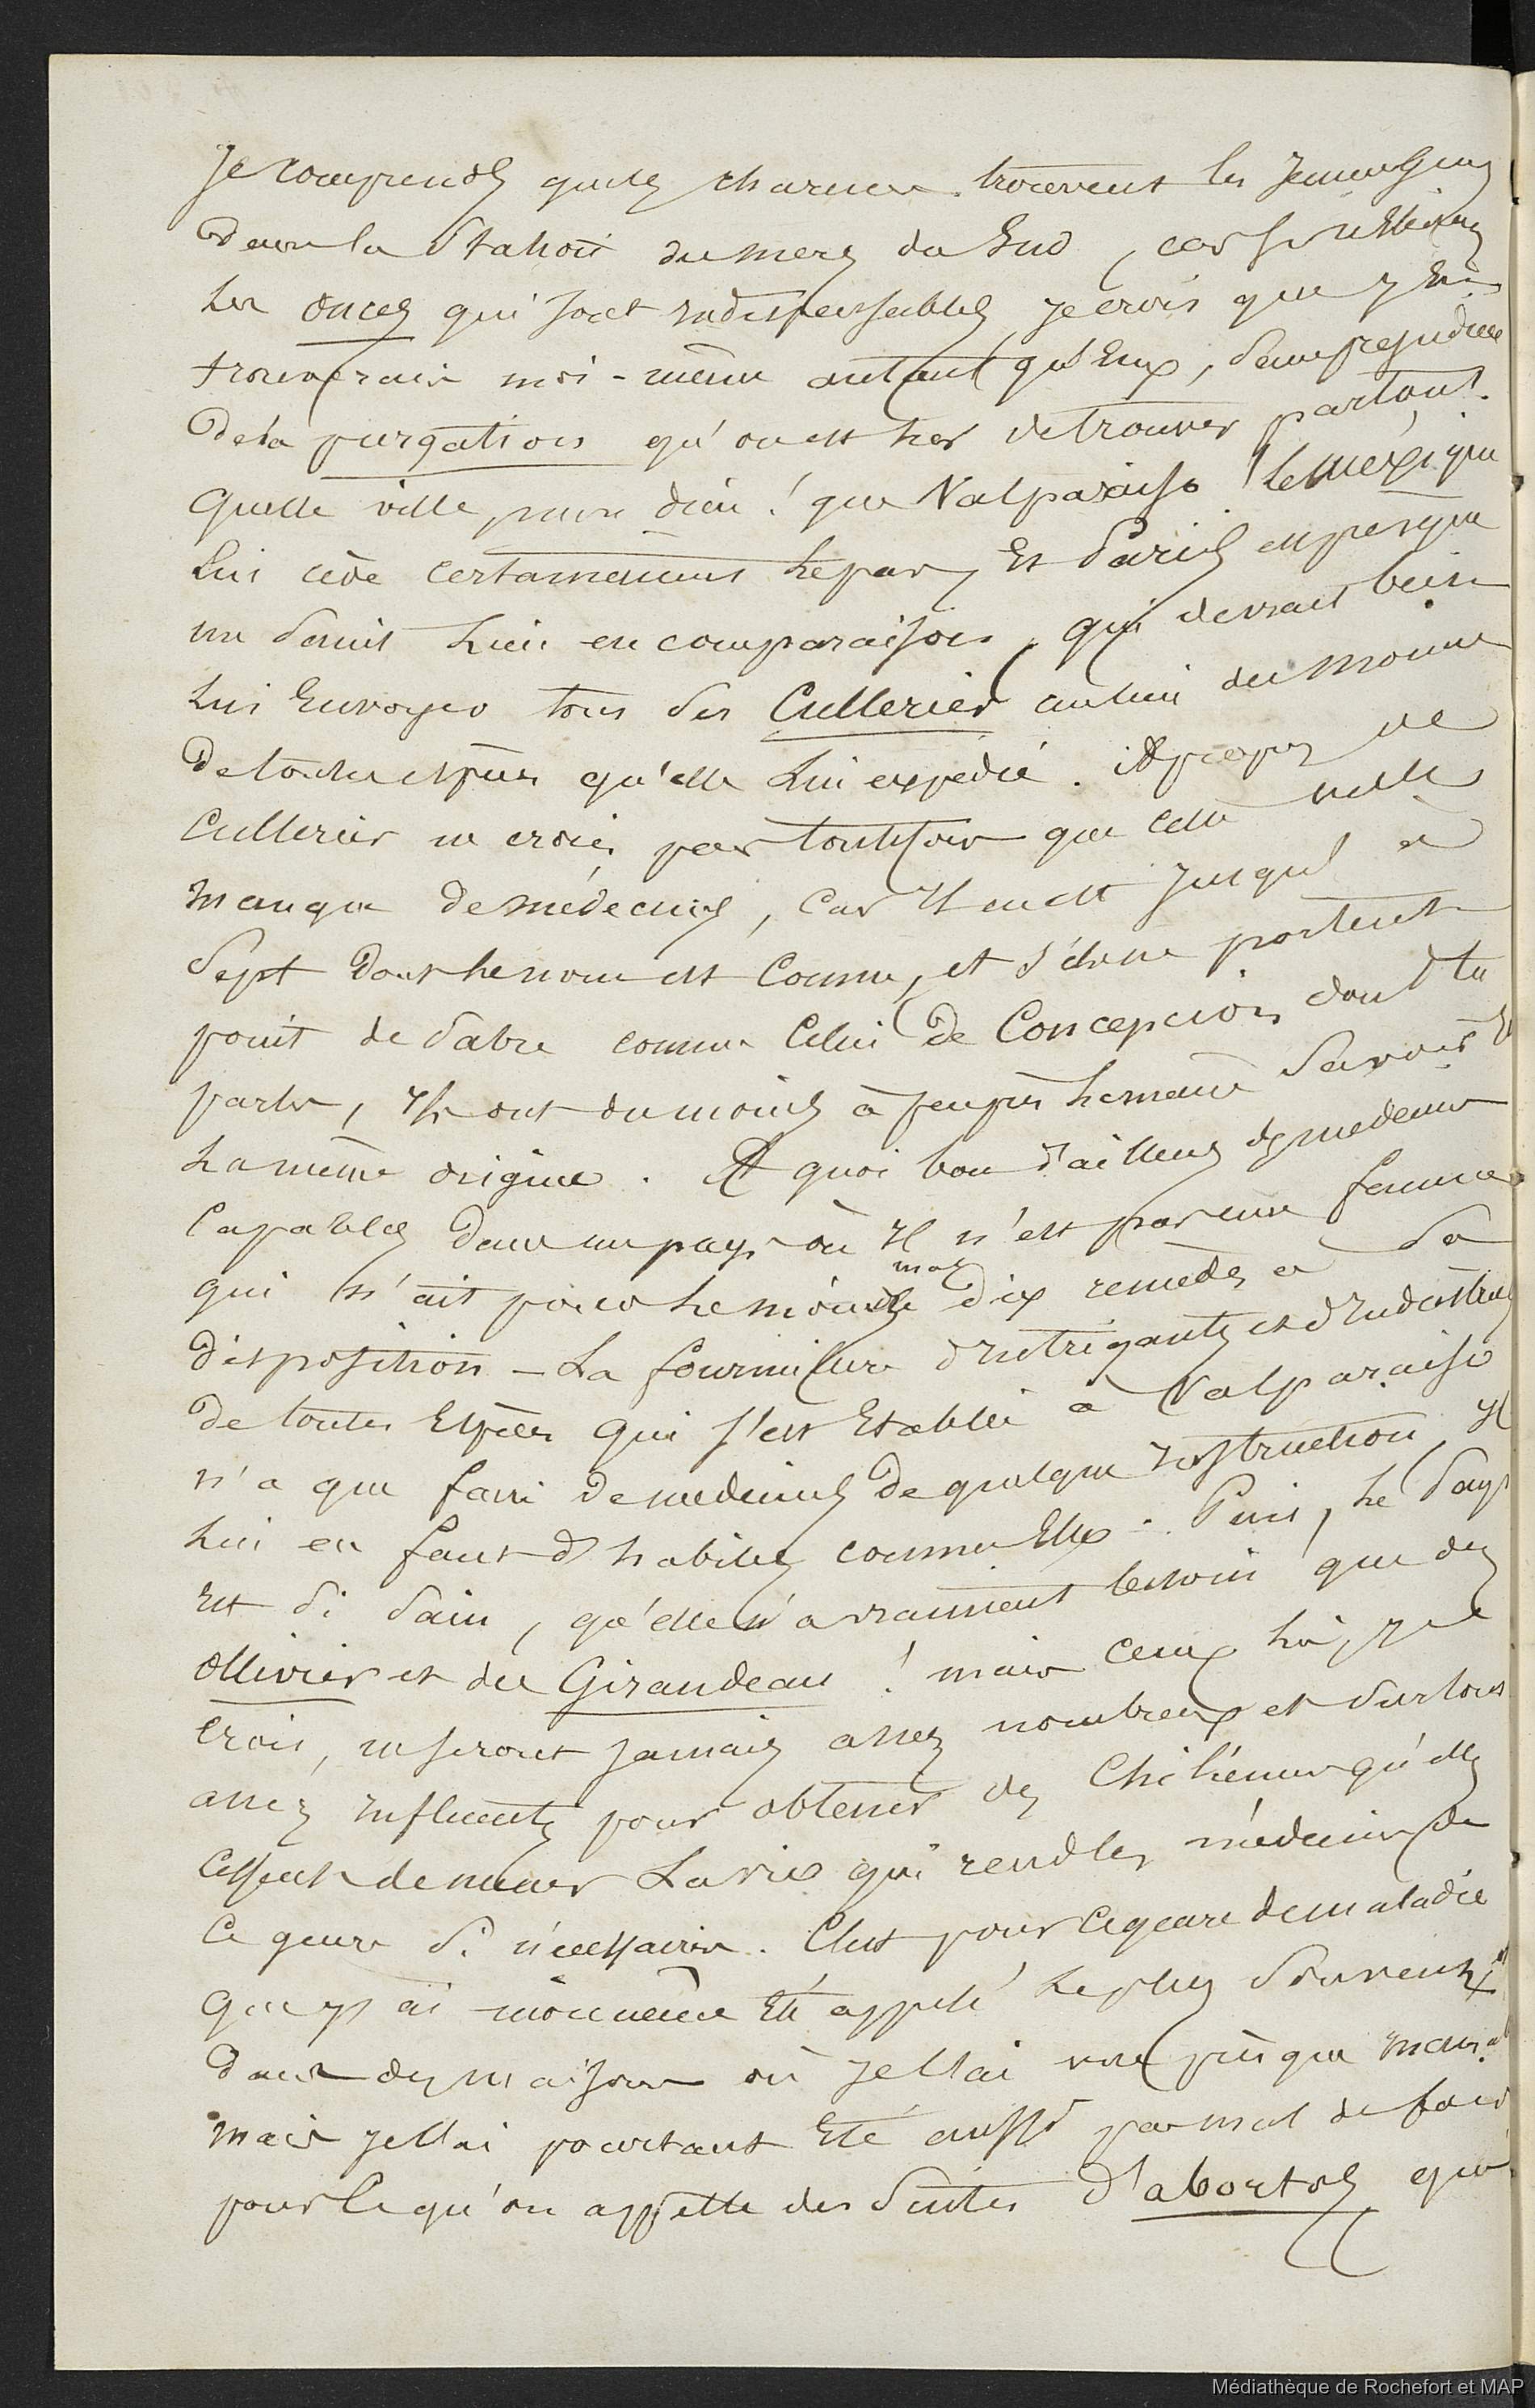 Je comprends quels charmes trouvent les jeunes gens
dans la station des mers du Sud, car si
les onces qui sont indispensables, je crois que j'en
trouverais moi-même autant qu'eux, sans préjudice
de la purgation qu'on est sûr de trouver partout.
quelle ville, mon dieu! que Valparaiso! le Mexique
lui cède certainement le pas, et Paris est presque
un saint lieu en comparaison, qui devrait bien
lui envoyer tous ses Cullerier au lieu des
de toutes espèces qu'elle lui expédie. A propos de
Cullerier ne crois pas toutefois que cette ville
manque de médecins, car il en est jusqu'à
Sept dont le nom est connu, et s'ils ne portent
point de sabre comme celui de Concepcion dont tu
parles, ils ont du moins à peu près le même savoir et
la même origine. A quoi bon d'ailleurs des médecins
capables dans un pays où il n'est pas une femme
qui n'ait pour le moins dix remèdes à sa
disposition – La fourmilière d'intrigants et d'industriels
de toutes Espèces qui s'est Etablie à Valparaiso
n'a que faire de medecins de quelque instruction, il
lui en faut d'habiles comme Elle. Puis, le pays
est si sain, qu'elle n'a vraiment besoin que des
Ollivier et des Giraudeau! mais ceux là, je le
crois, ne seront jamais assez nombreux et surtout
assez influents pour obtenir des Chiliennes qu'elles
cessent de mener la vie qui rend les médecins de
ce genre si nécessaires. C'est pour ce genre de maladie
que j'ai moi même été appelé le plus souvent
dans des maisons où je l'ai
mais je l'ai pourtant été aussi pas mal de fois
pour ce qu'on appelle des suites d'abortos qui